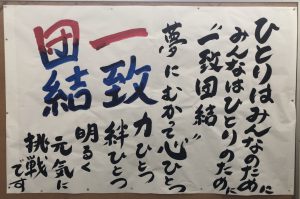 ひとりはみんなのために
みんなはひとりのために
"一致団結"
夢にむかって心ひとつ
力ひとつ
絆ひとつ
一致
団結
明るく
元気に
挑戦
です